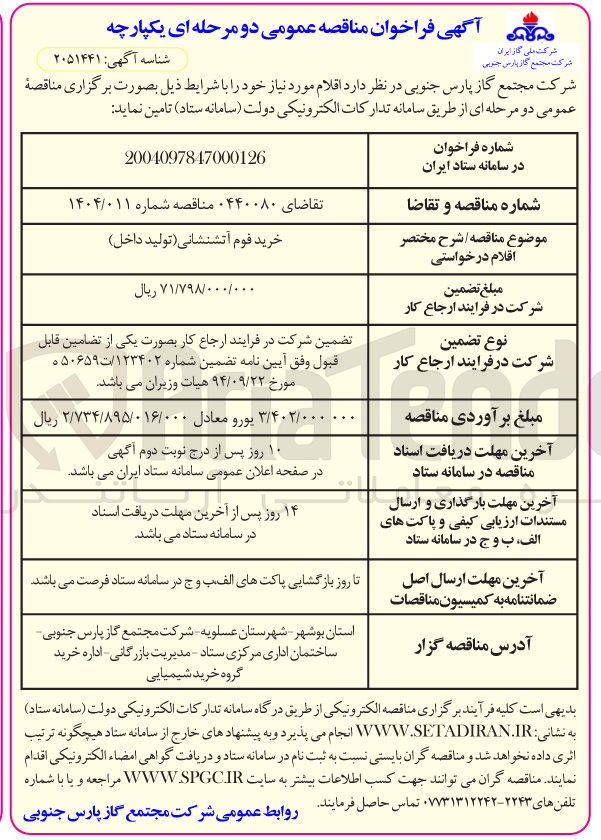 آگهی فراخوان مناقصه عمومی دو مرحله ای یکپارچه
شرکت ملی گاز ایران
شرکت مجتمع گاز پارس جنوبی
شناسه آگهی: ۲۰۵۱۴۴۱
شرکت مجتمع گاز پارس جنوبی در نظر دارد اقلام مورد نیاز خود را با شرایط ذیل بصورت برگزاری مناقصهٔ
عمومی دو مرحله ای از طریق سامانه تدارکات الکترونیکی دولت (سامانه ستاد) تامین نماید:
شماره فراخوان
در سامانه ستاد ایران
2004097847000126
شماره مناقصه و تقاضا
تقاضای ۰۴۴۰۰۸۰ مناقصه شماره ۱۴۰۴/۰۱۱
موضوع مناقصه/شرح مختصر
اقلام درخواستی
خرید فوم آتشنشانی(تولید داخل)
مبلغ تضمین
شرکت در فرایند ارجاع کار
۷۱/۷۹۸/۰۰۰/۰۰۰ ریال
نوع تضمین
شرکت درفرایند ارجاع کار
تضمین شرکت در فرایند ارجاع کار بصورت یکی از تضامین قابل
قبول وفق آیین نامه تضمین شماره ۱۲۳۴۰۲/ت۵۰۶۵۹ ه
مورخ ۹۴/۰۹/۲۲ هیات وزیران می باشد.
مبلغ برآوردی مناقصه
۳/۴۰۲/۰۰۰ ۰۰۰ یورو معادل ۲/۷۳۴/۸۹۵/۰۱۶/۰۰۰ ریال
آخرین مهلت دریافت اسناد
مناقصه در سامانه ستاد
۱۰ روز پس از درج نوبت دوم آگهی
در صفحه اعلان عمومی سامانه ستاد ایران می باشد.
آخرین مهلت بارگذاری و ارسال
مستندات ارزیابی کیفی و پاکت های
الف، ب و ج در سامانه ستاد
۱۴ روز پس از آخرین مهلت دریافت اسناد
در سامانه ستاد می باشد.
آخرین مهلت ارسال اصل
ضمانتنامه به کمیسیون مناقصات
تا روز بازگشایی پاکت های الف ب و ج در سامانه ستاد فرصت می باشد.
آدرس مناقصه گزار
استان بوشهر-شهرستان عسلویه-شرکت مجتمع گاز پارس جنوبی-
ساختمان اداری مرکزی ستاد -مدیریت بازرگانی-اداره خرید
گروه خرید شیمیایی
بدیهی است کلیه فرآیند برگزاری مناقصه الکترونیکی از طریق درگاه سامانه تدارکات الکترونیکی دولت (سامانه ستاد)
به نشانی: WWW.SETADIRAN.IR انجام می پذیرد و به پیشنهاد های خارج از سامانه ستاد هیچگونه ترتیب
اثری داده نخواهد شد و مناقصه گران بایستی نسبت به ثبت نام در سامانه ستاد و دریافت گواهی امضاء الکترونیکی اقدام
نمایند. مناقصه گران می توانند جهت کسب اطلاعات بیشتر به سایت WWW.SPGC.IR مراجعه و یا با شماره
تلفن های ۲۲۴۳-۰۷۷۳۱۳۱۲۲۴۲ تماس حاصل فرمایند.
روابط عمومی شرکت مجتمع گاز پارس جنوبی